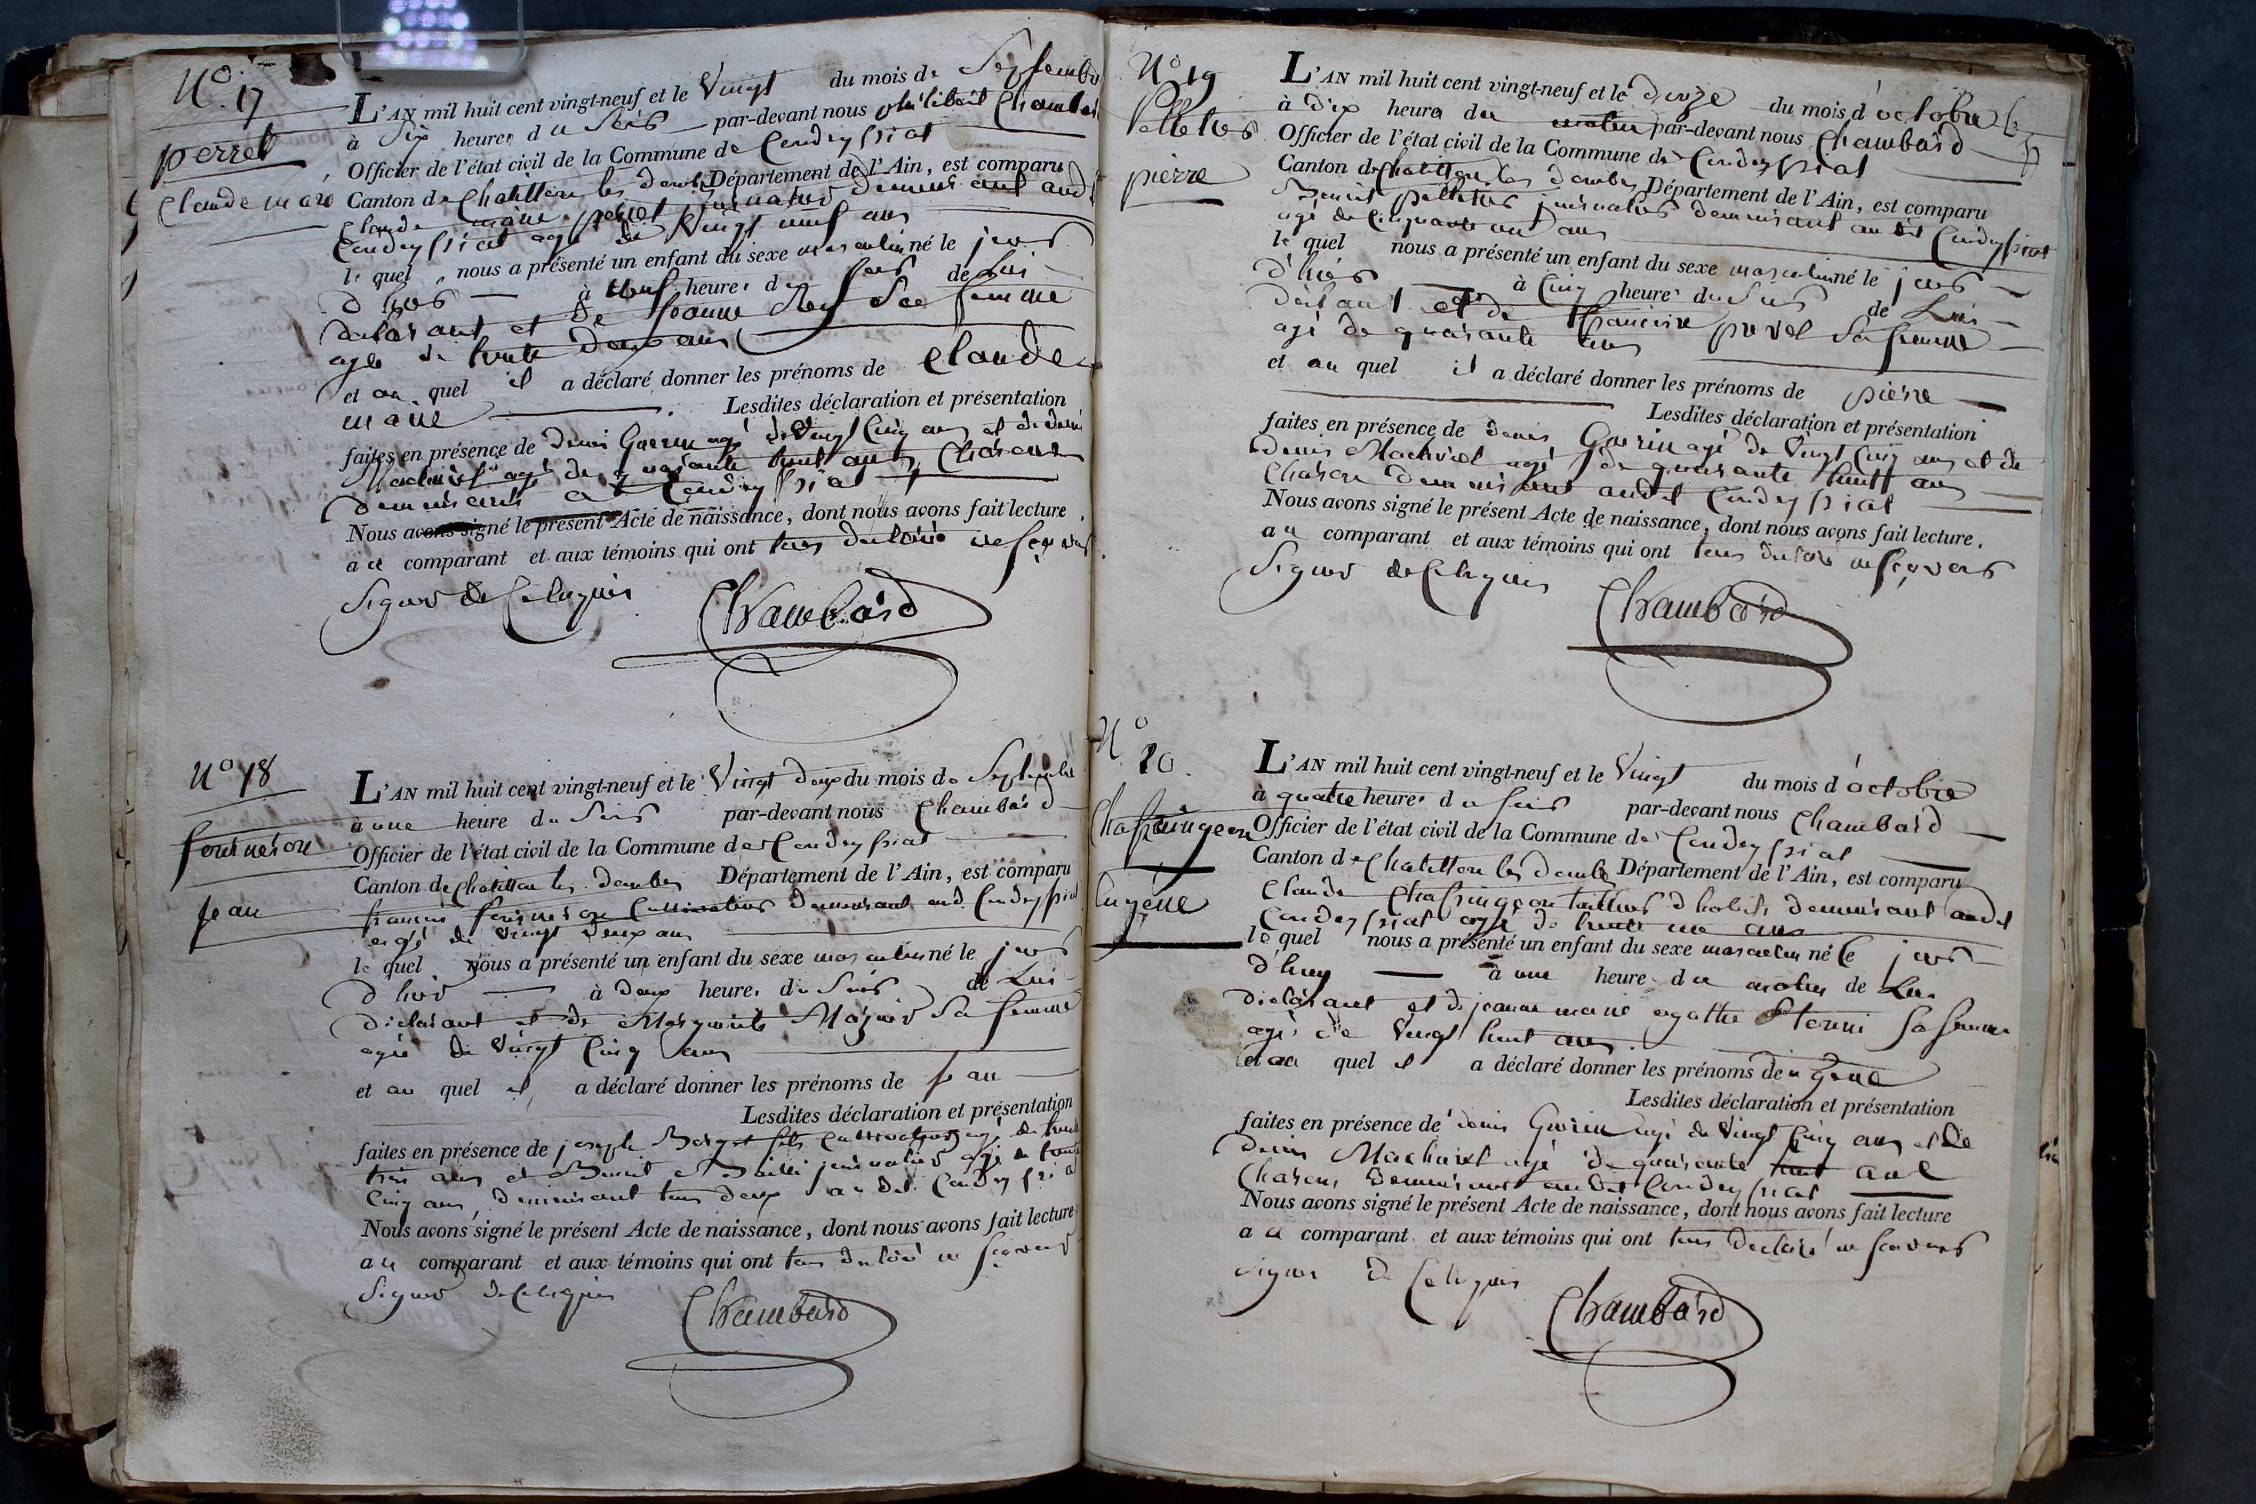 N° 17
perret
Claude marie
L'AN mil huit cent vingt-neuf et le Vingt du mois de Septembre
à Six heures du Soir par-devant nous philibert Chambard
Officier de l'état civil de la Commune de Condeyssiat
Canton de Chatillon les dombes Département de l'Ain, est comparu
Claude marie perret journalier demeurant aud
Condeyssiat agé de Vingt neuf ans
le quel nous a présenté un enfant du sexe masculin né le jour
d'hier à neuf heures du soir de Lui
declarant et de Jeanne Rey Sa femme
agée de trente Deux ans
et au quel il a déclaré donner les prénoms de Claude
marie Lesdites déclaration et présentation
faites en présence de denis Guerin agé de Vingt Cinq ans et de denis
agé de quarante huit ans Charon
demeurant à Condeyssiat
Nous avons signé le présent Acte de naissance, dont nous avons fait lecture
au comparant et aux témoins qui ont tous declaré ne sçavoir
Signer de Ce Requis
Chambard
N° 18
fourneron
jean
L'AN mil huit cent vingt-neuf et le Vingt Deux du mois de Septembre
à une heure du Soir par-devant nous Chambard
Officier de l'état civil de la Commune de Condeyssiat
Canton de Chatillon les dombes Département de l'Ain, est comparu
francois fourneron Cultivateur demeurant aud. Condeyssiat
agé de Vingt deux ans
le quel nous a présenté un enfant du sexe masculin né le jour
d'hier à deux heures du Soir de Lui
declarant et de Marguerite Sa femme
agée de Vingt Cinq ans
et au quel il a déclaré donner les prénoms de jean
Lesdites déclaration et présentation
faites en présence de joseph fils Cultivateur agé de trente
trois ans et Benoit journalier agé de trente
Cinq ans, demeurant tous deux audit Condeyssiat
Nous avons signé le présent Acte de naissance, dont nous avons fait lecture
au comparant et aux témoins qui ont tous declaré ne sçavoir
Signer de Ce Requis
Chambard
N° 19
Pelletier
pierre
L'AN mil huit cent vingt-neuf et le du mois d'octobre
à dix heures du matin par-devant nous Chambard
Officier de l'état civil de la Commune de Condeyssiat
Canton de Chatillon les dombes Département de l'Ain, est comparu
Benoit pelletier journalier demeurant audit Condeyssiat
agé de Cinquante un ans
le quel nous a présenté un enfant du sexe masculin né le jour
d'hier à Cinq heures du Soir de Lui
declarant et de francoise Sa femme
agé de quarante ans
et au quel il a déclaré donner les prénoms de pierre
Lesdites déclaration et présentation
faites en présence de denis Guerin agé de Vingt Cinq ans et de
denis agé de quarante huit ans
Charon demeurant audit Condeyssiat
Nous avons signé le présent Acte de naissance, dont nous avons fait lecture.
au comparant et aux témoins qui ont tous declaré ne sçavoir
Signer de Ce Requis
Chambard
N° 20.
Chafringeon
Eugéne
L'AN mil huit cent vingt-neuf et le Vingt du mois d'octobre
à quatre heures du Soir par-devant nous Chambard
Officier de l'état civil de la Commune de Condeyssiat
Canton de Chatillon les dombes Département de l'Ain, est comparu
Claude Chafringeon tailleur d'habits demeurant audit
Condeyssiat agé de trente un ans
le quel nous a présenté un enfant du sexe masculin né le jour
d'huy à une heure du matin de Lui
declarant et de jeanne marie agathe Sa femme
agé de Vingt huit ans.
et au quel il a déclaré donner les prénoms de ugene
Lesdites déclaration et présentation
faites en présence de denis Guerin agé de Vingt Cinq ans et de
denis agé de quarante huit ans
Charon, demeurant audit Condeyssiat
Nous avons signé le présent Acte de naissance, dont nous avons fait lecture
au comparant et aux témoins qui ont tous declaré ne sçavoir
signer de Ce Requis
Chambard